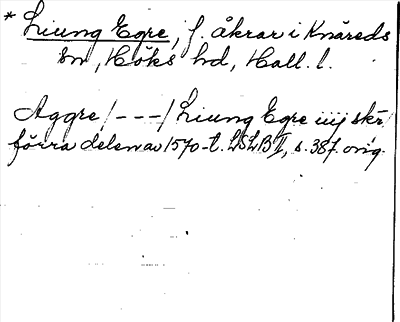 * Liung Egre, f. åkrar i Knäreds
sn, Höks hd, Hall. l.
Aggre /---/ Liung Egre iiij skr
förra delen av 1570-t. LSLB II, s. 387. orig.